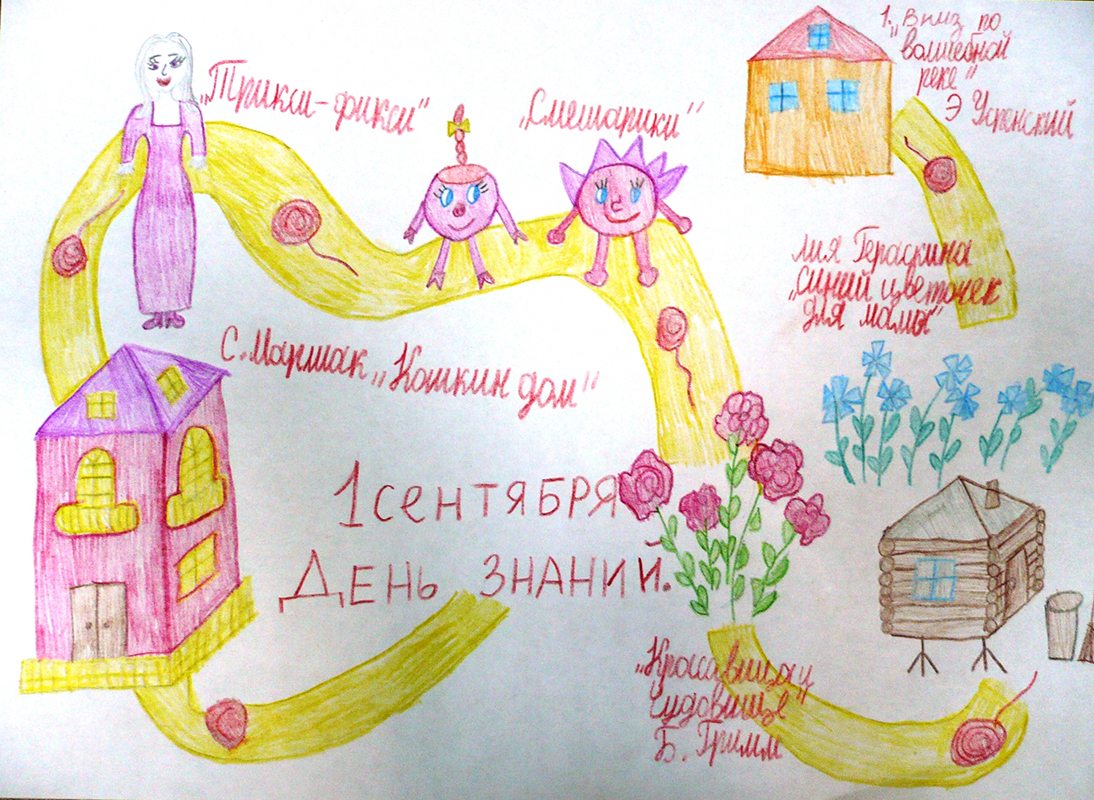 „Трикси-фикси"
„Смешарики"
1. „Вниз по
волшебной
реке"
Э Успенский
Лия Гераскина
„Синий цветочек
для мамы"
С. Маршак „Кошкин дом"
1 СЕНТЯБРЯ
ДЕНЬ ЗНАНИЙ.
„Красавица и
чудовище"
Б. Гримм